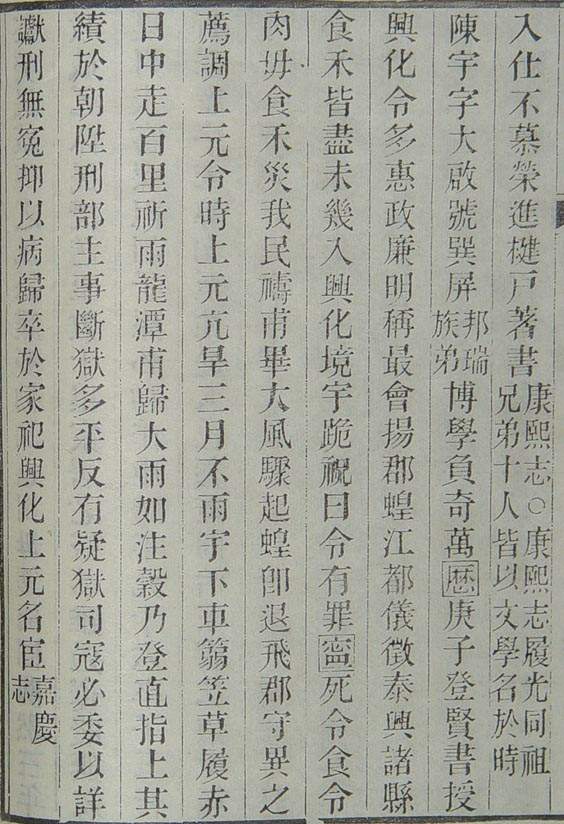 入仕不慕榮進楗戸著書康熙志○康熙志履光同祖兄弟十人皆以文學名於時
陳宇字大啟號巽屏邦瑞族弟博學負奇萬厯庚子登賢書授
興化令多惠政廉明稱最會揚郡蝗江都儀徵泰興諸縣
食禾皆盡未幾入興化境宇跪祝曰令有罪寍死令食令
肉毋食禾災我民禱甫畢大風驟起蝗卽退飛郡守異之
薦調上元令時上元亢旱三月不雨宇下車篛笠草履赤
日中走百里祈雨龍潭甫歸大雨如注穀乃登直指上其
績於朝陞刑部主事斷獄多平反有疑獄司寇必委以詳
讞刑無冤抑以病歸卒於家祀興化上元名宦嘉慶志